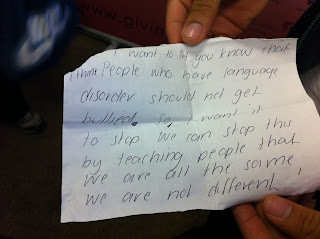 www.givin
I want to let you know that
I think People who have language
disorder should not get
bullied. So I want it
to stop. We can stop this
by teaching people that
we are all the same
we are not different.